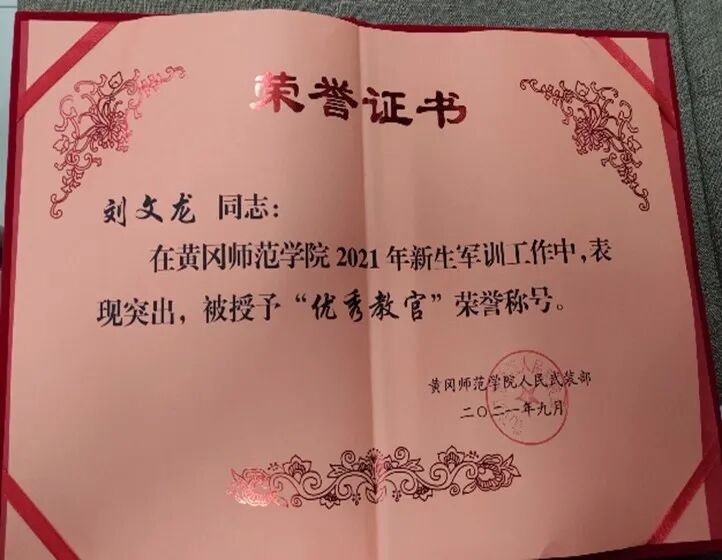 荣誉证书
刘文龙 同志：
在黄冈师范学院2021年新生军训工作中，表
现突出，被授予“优秀教官”荣誉称号。
黄冈师范学院人民武装部
二〇二一年九月